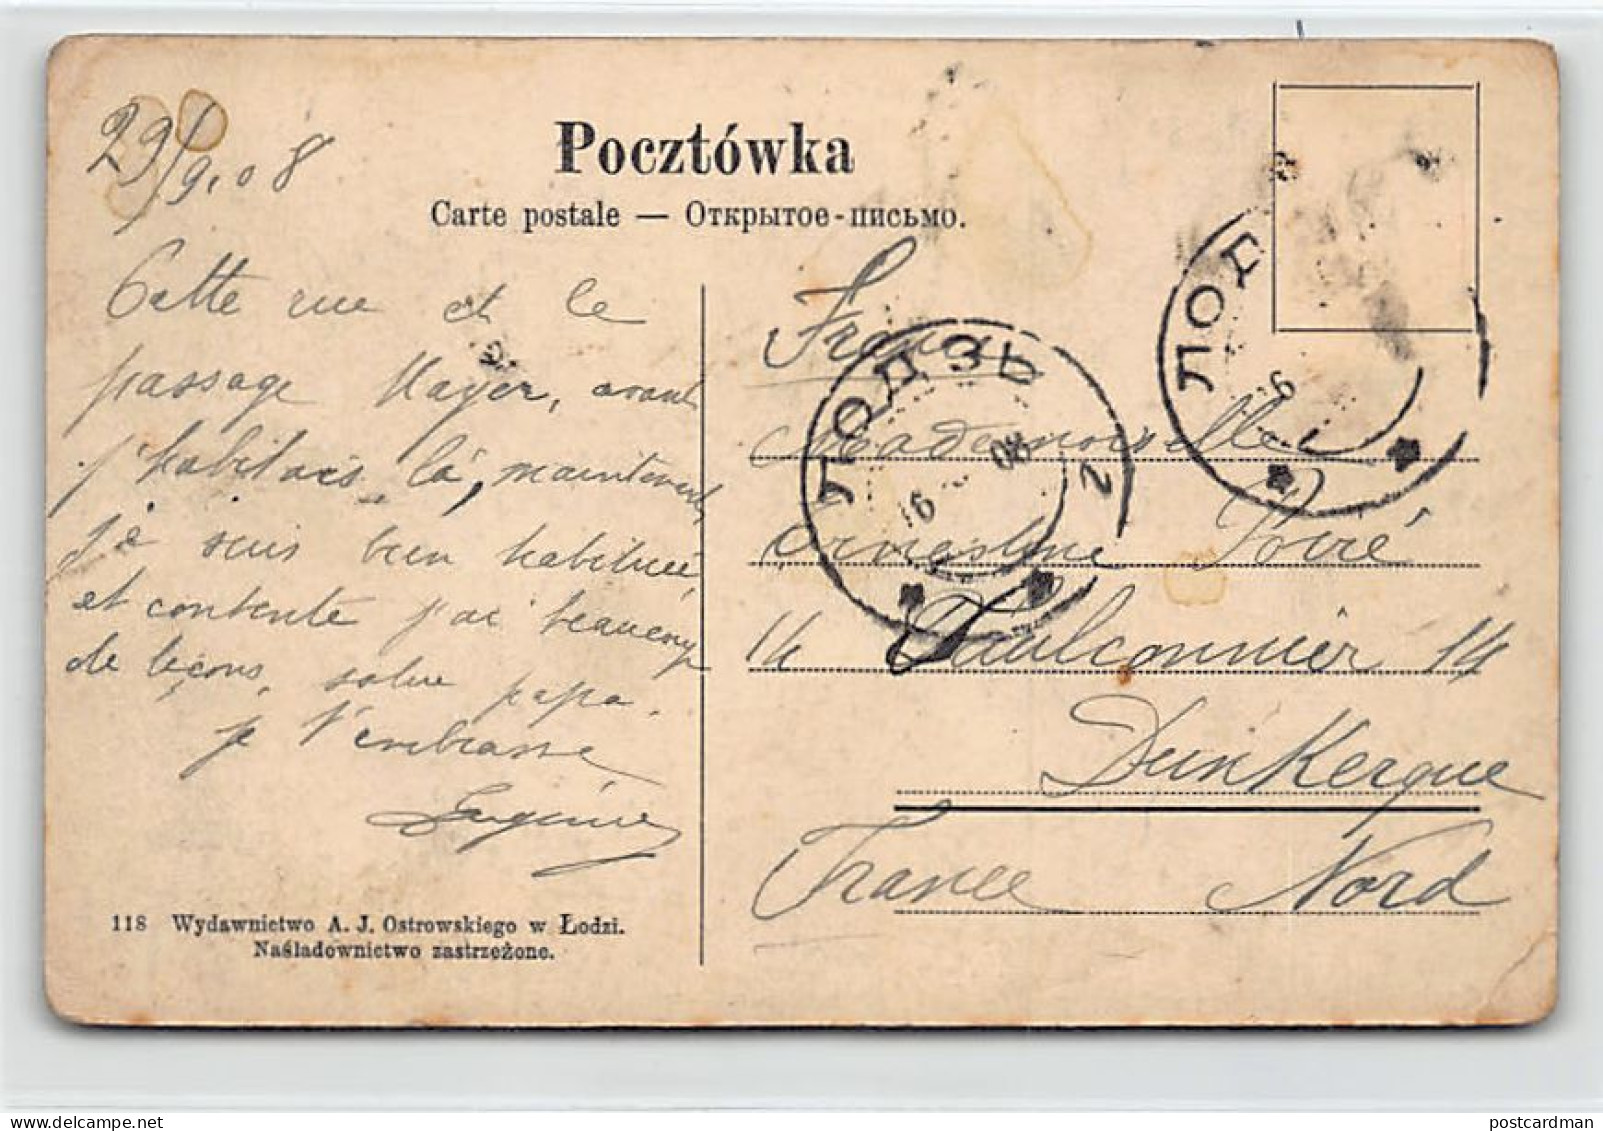 29/9.08
Pocztówka
Carte postale — Открытое-письмо.
Cette rue et le
passage Mayer, avant
j'habitais là, maintenant
je suis bien habituée
et contente j'ai beaucoup
de leçons, salue papa.
je t'embrasse
118 Wydawnictwo A. J. Ostrowskiego w Łodzi.
Naśladownictwo zastrzeżone.
France
Mademoiselle
Ernestine
14 Faulconnier 14
Dunkerque
France Nord
ЛОДЗЬ
16 08
2
ЛОД
16
postcardman